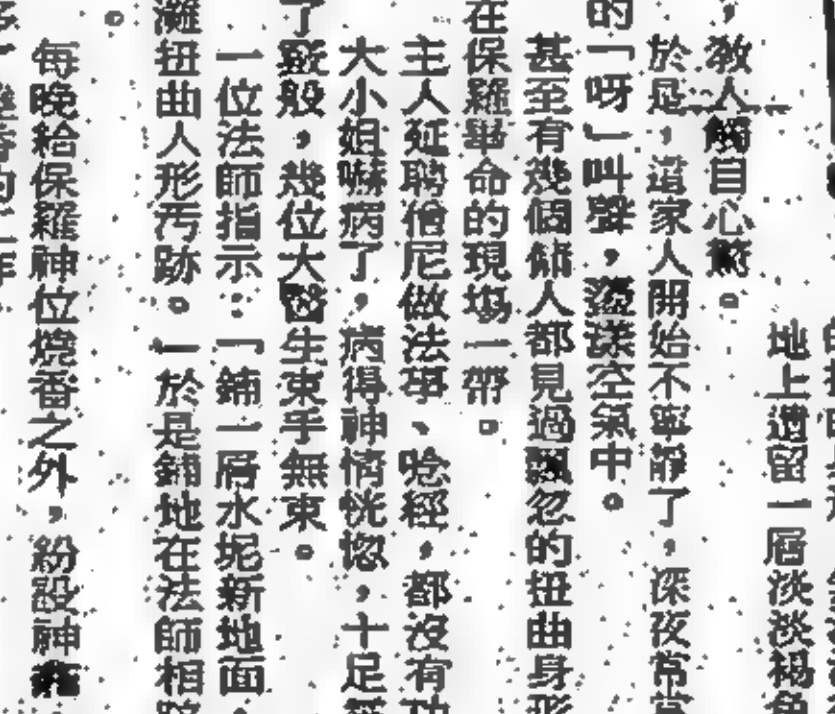 地上遺留一層淡淡褐色
，教人觸目心驚。
於是，這家人開始不寧靜了，深夜常常
的「呀」叫聲，盪漾空氣中。
甚至有幾個師人都見過飄忽的扭曲身形
在保羅畢命的現場一帶。
主人延聘僧尼做法事、唸經，都沒有功
大小姐嚇病了，病得神情恍惚，十足
了
般，幾位大醫生束手無束。
一位法師指示：「鋪一層水坭新地面，
灘扭曲人形污跡。」於是鋪地在法師相
。
每晚給保羅神位燒香之外，紛設神